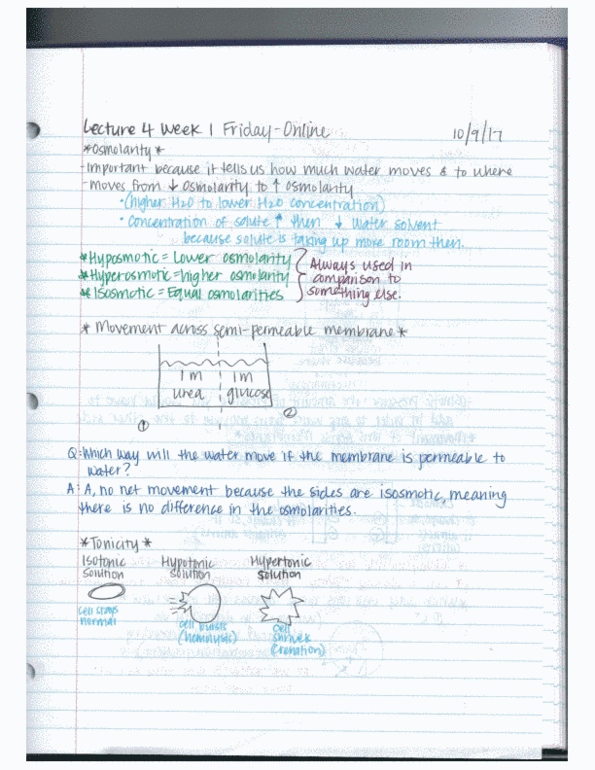 Lecture 4 Week 1 Friday-Online 10/9/17
*Osmolarity*
-Important because it tells us how much water moves & to where
-moves from ↓ osmolarity to ↑ osmolarity
•(higher H2O to lower H2O concentration)
• Concentration of solute ↑ then ↓ water solvent
because solute is taking up more room then.
*Hyposmotic = Lower osmolarity
*Hyperosmotic = higher osmolarity
*Isosmotic = Equal osmolarities
Always used in
comparison to
something else.
* Movement across semi-permeable membrane*
1m 1m
urea glucose
① ②
Q: Which way will the water move if the membrane is permeable to
water?
A: A, no net movement because the sides are isosmotic, meaning
there is no difference in the osmolarities.
*Tonicity*
Isotonic Hypotonic Hypertonic
solution solution solution
cell stays
normal
cell bursts
(hemolysis)
cell
shrivel
(crenation)